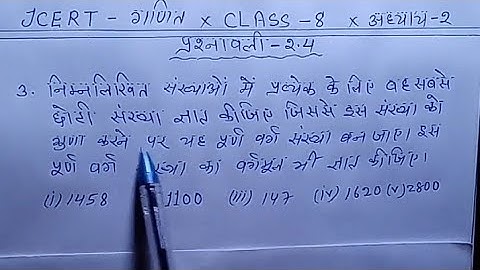 JCERT - गणित × CLASS - 8 × अध्याय - 2
प्रश्नावली - 2.4
3. निम्नलिखित संख्याओं में प्रत्येक के लिए वह सबसे
छोटी संख्या ज्ञात कीजिए जिससे इस संख्या को
गुणा करने पर यह पूर्ण वर्ग संख्या बन जाए। इस
पूर्ण वर्ग का वर्गमूल भी ज्ञात कीजिए।
(i) 1458 1100 (iii) 147 (iv) 1620 (v) 2800